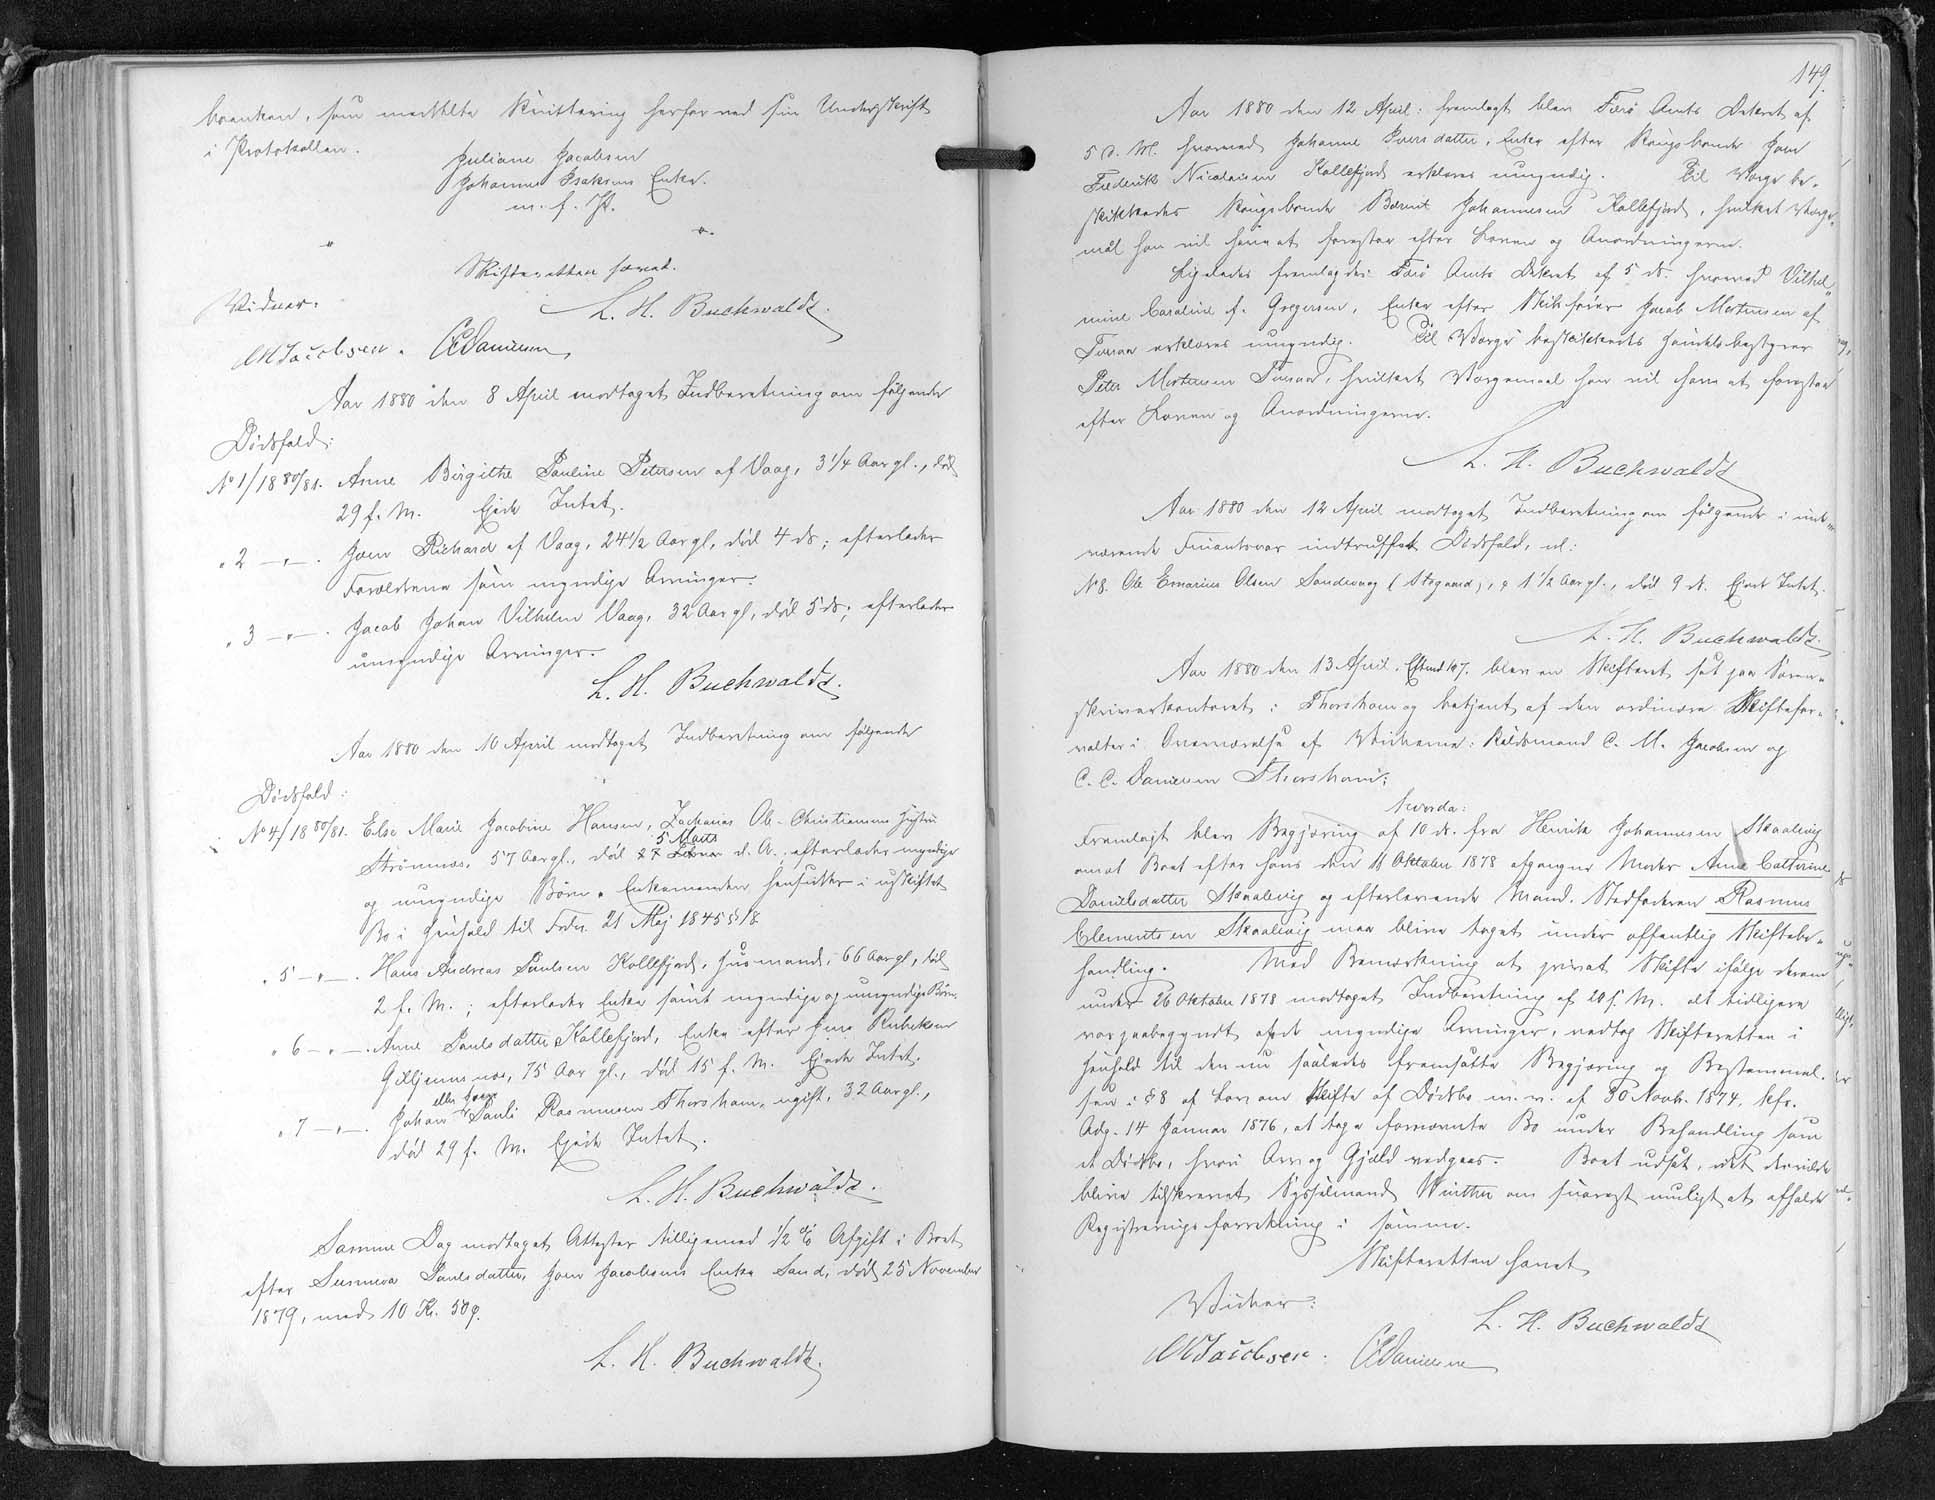 branken, som meddelte Kvittering herfor ved sin Underskrift
i Protokollen.
Juliane Jacobsen
Johannes Isaksens Enke.
m. f. P.
Skifteretten hævet.
L. H. Buchwaldt.
Vidner:
CMJacobsen. CCDanielsen
Aar 1880 den 8 April modtaget Indberetning om følgende
Dødsfald:
No 1/1880/81. Anne Birgithe Pauline Petersen af Vaag, 3 1/4 Aar gl., død
29 f. M. Ejede Intet.
" 2 —"—. Joen Richard af Vaag, 24 1/2 Aar gl, død 4 ds; efterlader
Forældrene som myndige Arvinger.
" 3 —"—. Jacob Johan Vilhelm Vaag, 32 Aar gl, død 5 ds; efterlader
umyndige Arvinger.
L. H. Buchwaldt.
Aar 1880 den 10 April modtaget Indberetning om følgende
Dødsfald:
No 4/1880/81. Else Marie Jacobine Hansen, Zacharias Ob. Christiansens Hustru
5 Marts
Strømnæs, 57 Aar gl., død 27 Februar d. A.; efterlader myndige
og umyndige Børn. Enkemanden hensidder i uskiftet
Bo i Henhold til Frdn. 21 Maj 1845 § 18
" 5 —"—. Hans Andreas Poulsen Kollefjord, Husmand, 66 Aar gl, død
2 f. M.; efterlader Enke samt myndige og umyndige Børn.
" 6 —"—. Anne Poulsdatter Kollefjord, Enke efter Jens Rubeksen
Gilljemsnæs, 75 Aar gl., død 15 f. M. Ejede Intet.
eller Joen
" 7 —"—. Johan Pauli Rasmussen Thorshavn, ugift, 32 Aar gl.,
død 29 f. M. Ejede Intet.
L. H. Buchwaldt.
Samme Dag modtaget Attester tilligemed 1/2 % Afgift i Boet
efter Sunneva Poulsdatter, Joen Jacobsens Enke Sand, død 25 November
1879, med 10 Kr. 50 ø.
L. H. Buchwaldt.
149.
Aar 1880 den 12 April: fremlagt blev Færø Amts Dekret af
5 d. M. hvorved Johanne Iversdatter, Enke efter Kongsbonde Joen
Frederik Nicolaisen Kollefjord erklæres umyndig. Til Værge be-
skikkedes Kongsbonde Bærent Johannesen Kollefjord, hvilket Værge-
mål han vil have at forestaa efter Loven og Anordningerne.
Ligeledes fremlagdes Færø Amts Dekret af 5 ds. hvorved Vilhel-
mine Caroline f. Gregersen, Enke efter Skibsfører Jacob Mortensen af
Tveraa erklæres umyndig. Til Værge beskikkedes Handelsbestyrer
Peter Mortensen Tveraa, hvilket Værgemaal han vil have at forestaa
efter Loven og Anordningerne.
L. H. Buchwaldt
Aar 1880 den 12 April modtaget Indberetning om følgende i inde-
værende Finantsaar indtruffet Dødsfald, nl:
No 8. Ole Emarius Olsen Sandevaag (Stegaard), 1 1/2 Aar gl., død 9 ds. Ejede Intet.
L. H. Buchwaldt.
Aar 1880 den 13 April. Eftmd 107. blev en Skifteret sat paa Soren-
skriverkontoret i Thorshavn og betjent af den ordinære Skiftefor-
valter i Overværelse af Vidnerne: Rådsmand C. M. Jacobsen og
C. C. Danielsen Thorshavn;
hvorda:
Fremlagt blev Begjæring af 10 ds. fra Henrik Johannesen Skaalevig
om at Boet efter hans den 11 Oktober 1878 afgangne Moder Anne Cathrine
Danielsdatter Skaalevig og efterlevende Mand, Stedfaderen Rasmus
Clementsen Skaalevig maa blive taget under offentlig Skiftebe-
handling. Med Bemærkning at privat Skifte ifølge derom
under 26 Oktober 1878 modtaget Indberetning af 20 s. M. alt tidligere
var paabegyndt af de myndige Arvinger, vedtog Skifteretten i
Henhold til den nu saaledes fremsatte Begjæring og Bestemmel-
sen i § 8 af Lov om Skifte af Dødsbo m. v. af 30 Novbr. 1874, kfr.
Adg. 14 Januar 1876, at tage fornævnte Bo under Behandling som
et Dødsbo, hvori Arv og Gjæld vedgaaes. Boet udsat, idet der vilde
blive tilskrevet Sysselmand Winther om snarest muligt at afholde
Registreringsforretning i samme.
Skifteretten hævet
L. H. Buchwaldt
Vidner:
CMJacobsen. CCDanielsen